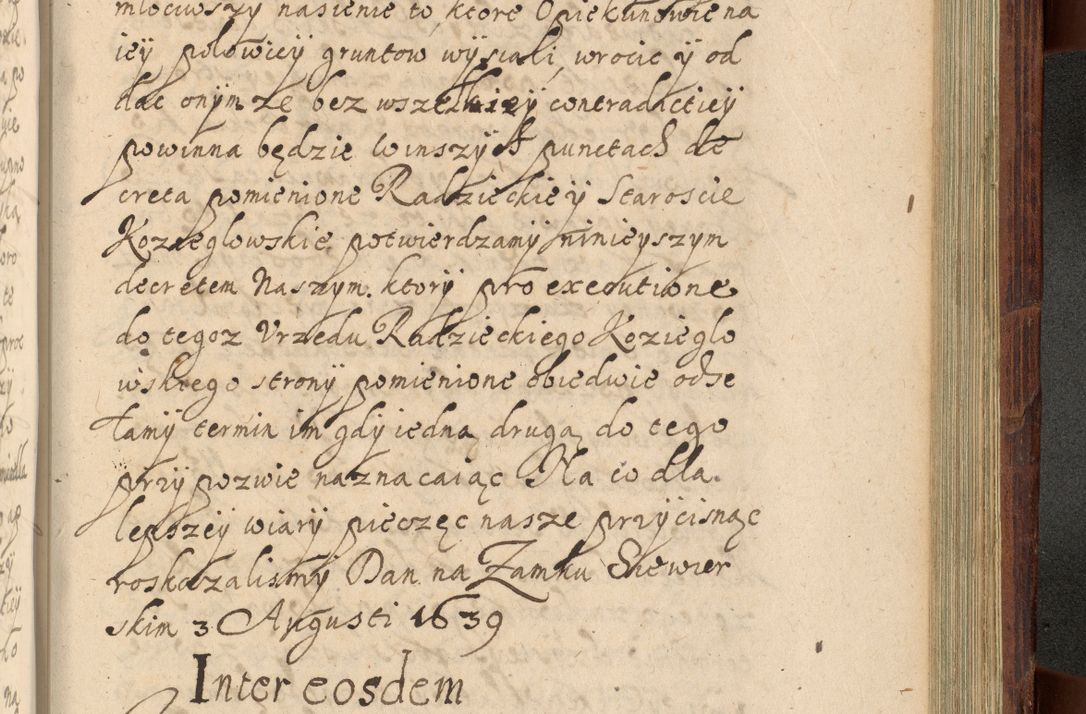 młociwszy nasienie to, ktore Opiekunowie na
iey połowicy gruntow wysiali, wrocic y od
dac onymze bez wszelkiey contradicticy
powinna będzie w inszych punctach de
creta pomienione Radzieckie y Staroscie
Kozieglowskie potwierdzamy ninieyszym
decretem Naszym. ktory pro executione
do tegoz Vrzedu Radzieckiego Kozieglo
wskiego strony pomienione obiedwie odse
łamy termin im gdy iedną drugą do tego
przypozwie naznacaiąc Na co dla.
lepszey wiary pieczęc nasze przycisnąc
roskazalismy Dan na Zamku Siewier
skim 3 Augusti 1639
Inter eosdem